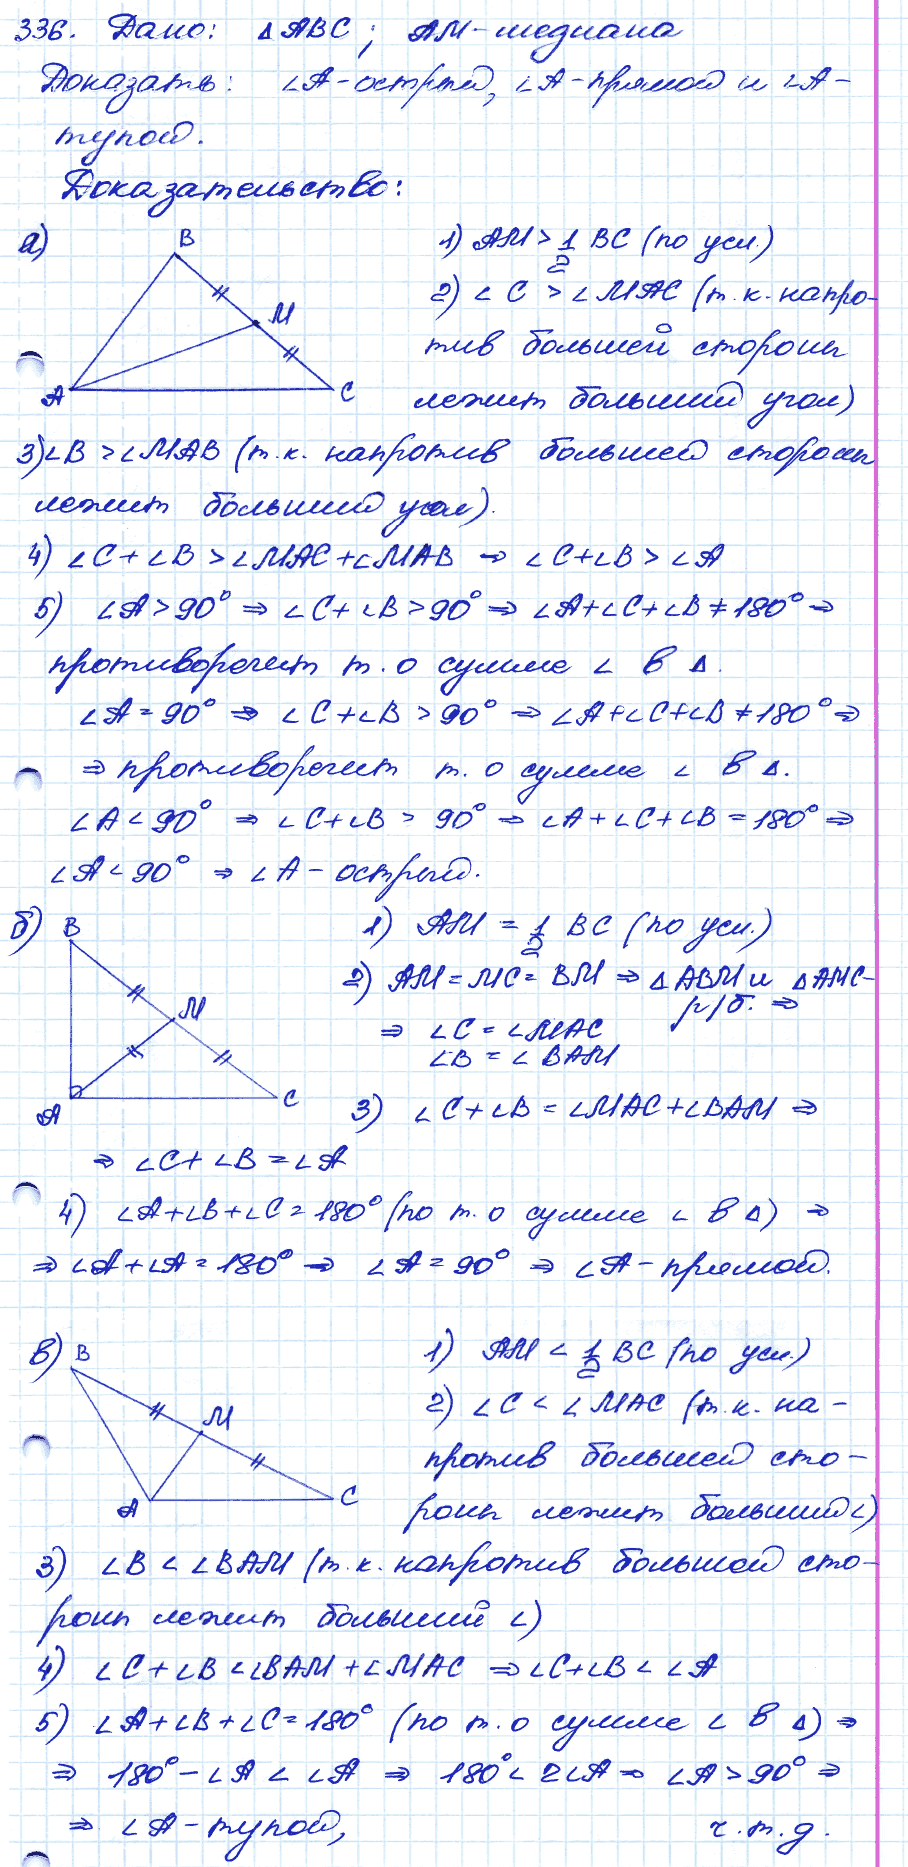 336. Дано: △ABC; AM-медиана
Доказать: ∠A-острый, ∠A-прямой и ∠A-
тупой.
Доказательство:
а)
B
M
A
C
1) AM > 1/2 BC (по усл.)
2) ∠C > ∠MAC (т.к. напро-
тив большей стороны
лежит больший угол)
3) ∠B > ∠MAB (т.к. напротив большей стороны
лежит больший угол).
4) ∠C + ∠B > ∠MAC + ∠MAB ⇒ ∠C + ∠B > ∠A
5) ∠A > 90° ⇒ ∠C + ∠B > 90° ⇒ ∠A + ∠C + ∠B ≠ 180° ⇒
противоречит т. о сумме ∠ в △.
∠A = 90° ⇒ ∠C + ∠B > 90° ⇒ ∠A + ∠C + ∠B ≠ 180° ⇒
⇒ противоречит т. о сумме ∠ в △.
∠A < 90° ⇒ ∠C + ∠B > 90° ⇒ ∠A + ∠C + ∠B = 180° ⇒
∠A < 90° ⇒ ∠A - острый.
б)
B
M
A
C
1) AM = 1/2 BC (по усл.)
2) AM = MC = BM ⇒ △ABM и △AMC-
р/б. ⇒
⇒ ∠C = ∠MAC
∠B = ∠BAM
3) ∠C + ∠B = ∠MAC + ∠BAM ⇒
⇒ ∠C + ∠B = ∠A
4) ∠A + ∠B + ∠C = 180° (по т. о сумме ∠ в △) ⇒
⇒ ∠A + ∠A = 180° ⇒ ∠A = 90° ⇒ ∠A - прямой.
в)
B
M
A
C
1) AM < 1/2 BC (по усл.)
2) ∠C < ∠MAC (т.к. на-
против большей сто-
роны лежит больший ∠)
3) ∠B < ∠BAM (т.к. напротив большей сто-
роны лежит больший ∠)
4) ∠C + ∠B < ∠BAM + ∠MAC ⇒ ∠C + ∠B < ∠A
5) ∠A + ∠B + ∠C = 180° (по т. о сумме ∠ в △) ⇒
⇒ 180° - ∠A < ∠A ⇒ 180° < 2∠A ⇒ ∠A > 90° ⇒
⇒ ∠A - тупой, ч.т.д.